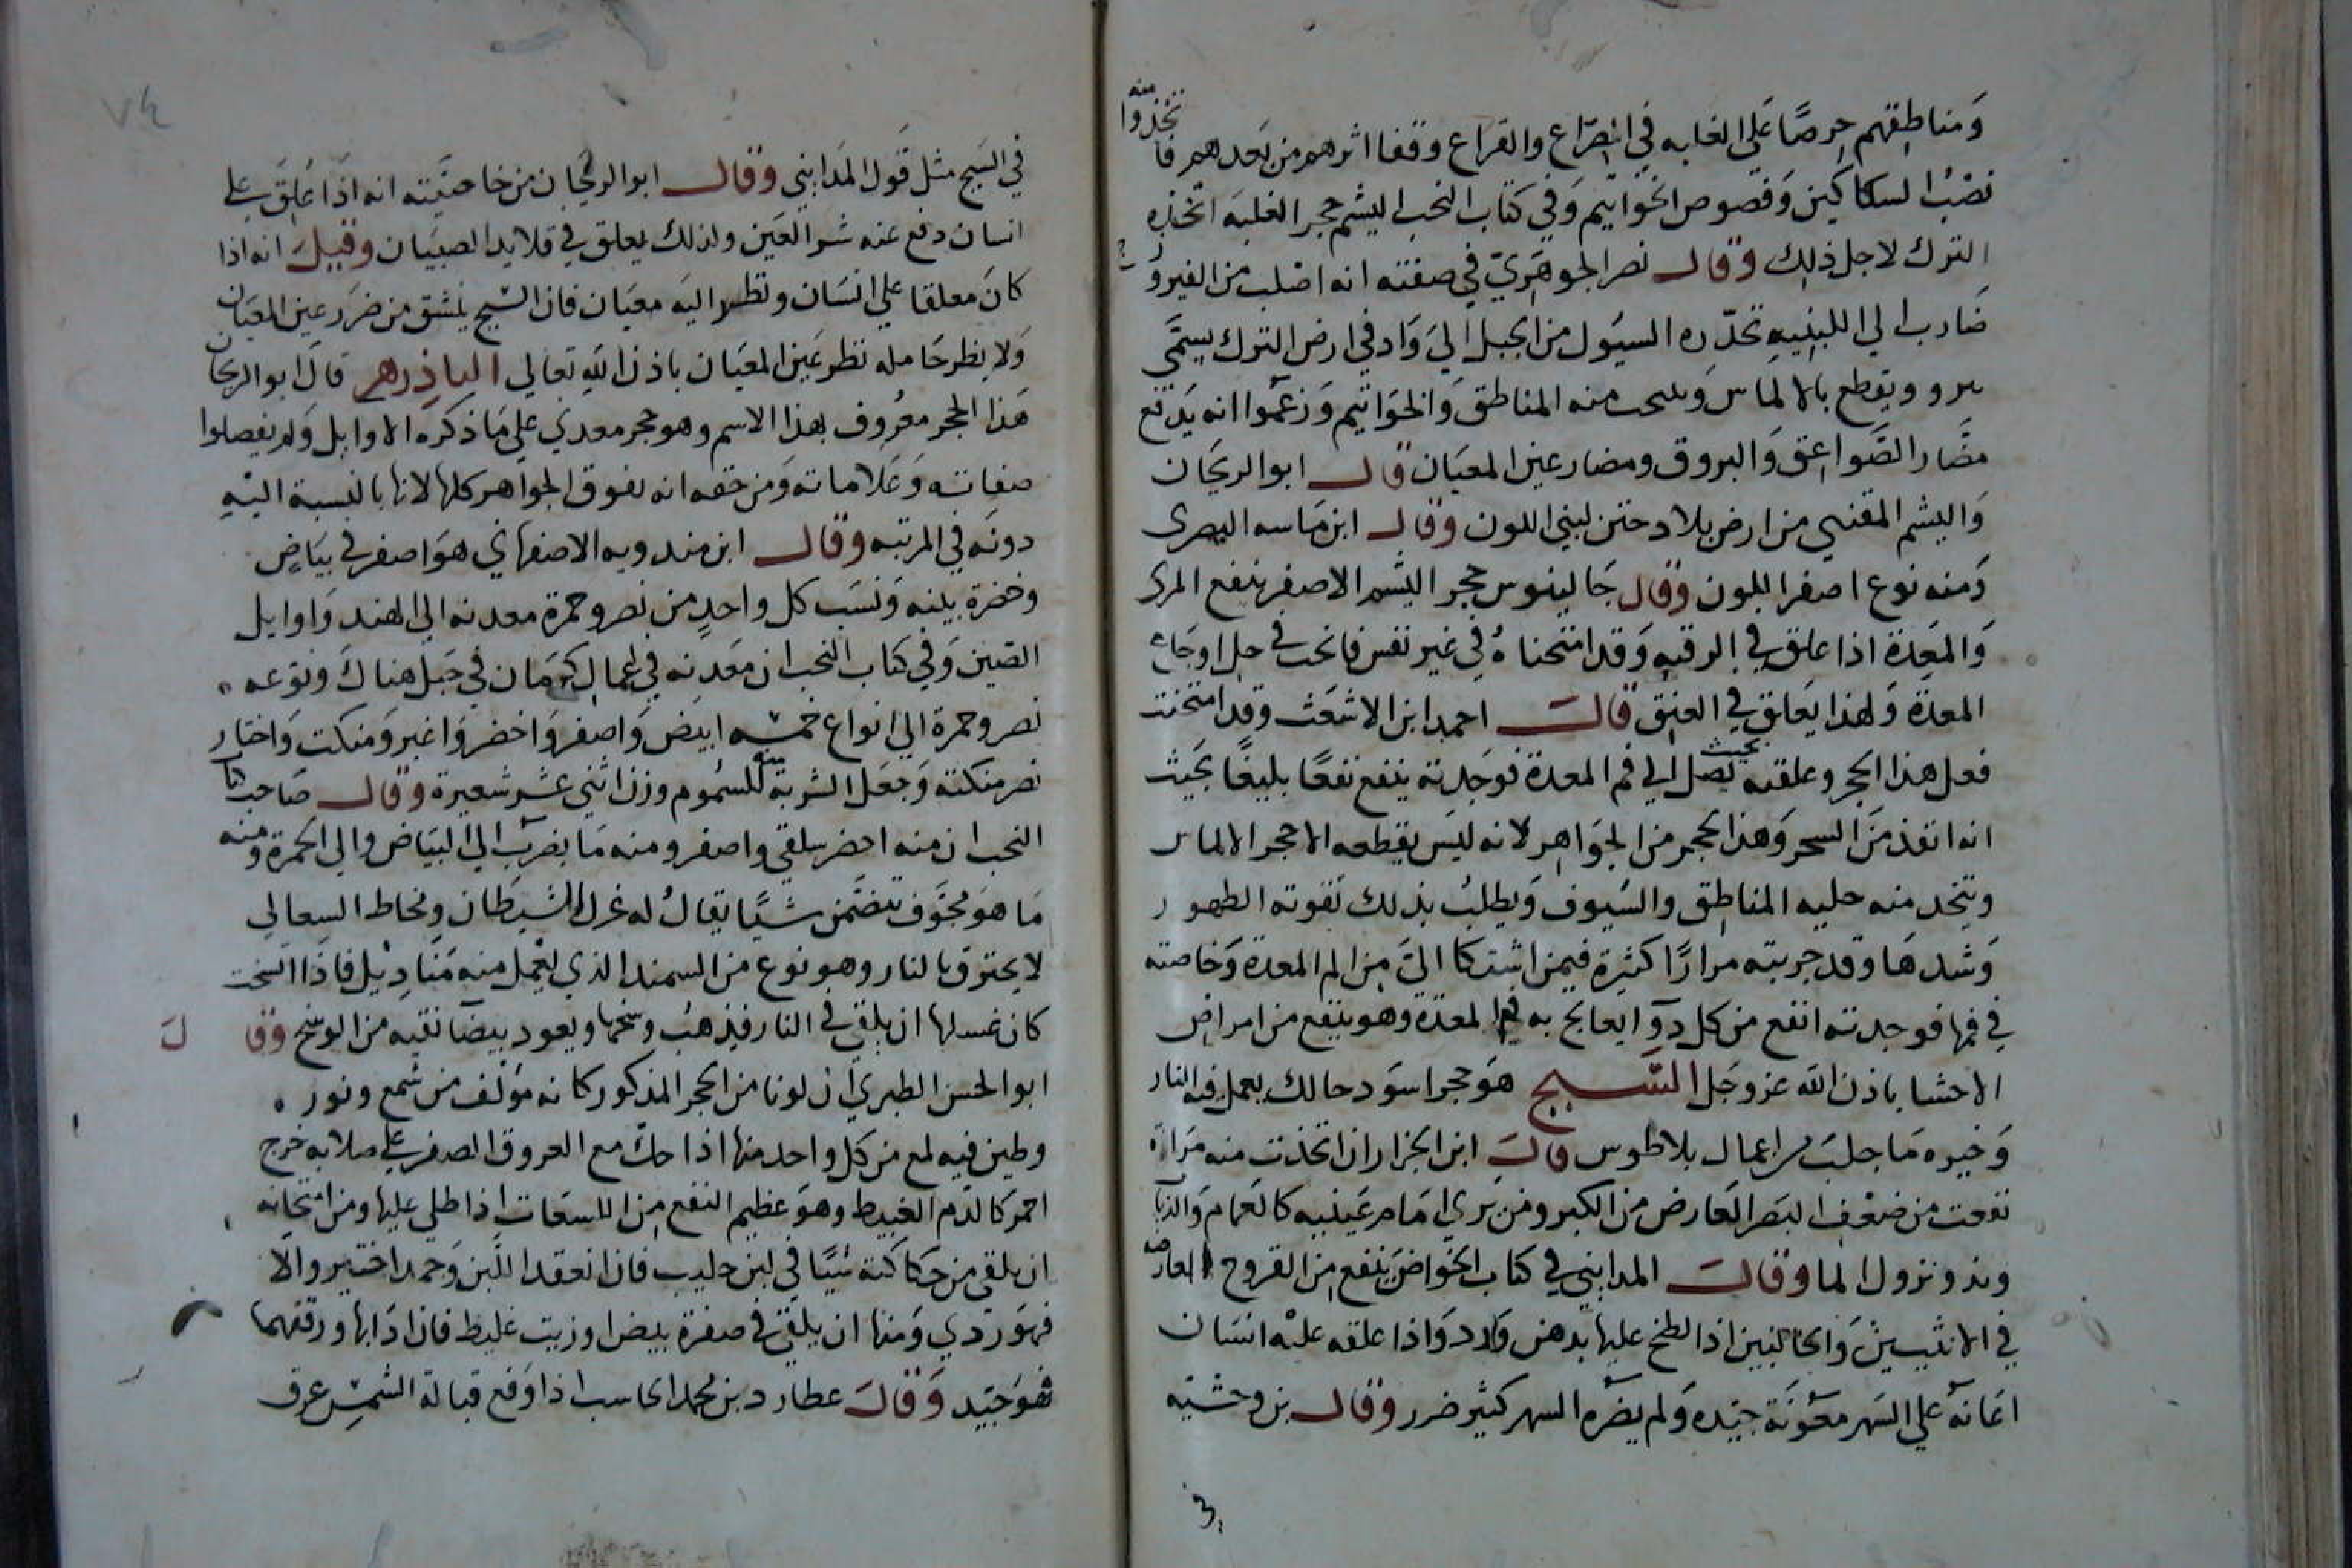 ومناطقهم حرصًا على الغلبه في الصراع والقراع وقفا اثرهم من بعدهم فاتخذوا منه
نصب السكاكين وفصوص الخواتيم وفي كتاب النخب اليشم حجر الغلبه اتخذه
الترك لاجل ذلك وقال نصر الجوهري في صفته انه اصلب من الفيروز
ضارب الي اللبنيه تحدره السيول من الجبل الي واد في ارض الترك يسمى
برو ويقطع بالالماس وينحت منه المناطق والخواتيم وزعموا انه يدفع
مضار الصواعق والبروق ومضار عين المعيان قال ابو الريحان
واليشم المقنني من ارض بلاد ختن لبني اللون وقال ابن ماسه البصرى
ومنه نوع اصفر اللون وقال جالينوس حجر اليشم الاصفر ينفع المرى
والمعدة اذا علق في الرقبه وقد امتحناه في غير نفس فانجب في حل اوجاع
المعدة ولهذا يعلق في العنق قال احمد ابن الاشعث وقد امتحنت
فعل هذا الحجر وعلقته بحيث يصل الي فم المعدة فوجدته ينفع نفعًا بليغًا بحيث
انه انفذ من السحر وهذا الحجر من الجواهر لانه ليس يقطعه الا حجر الالماس
ويتخد منه حليه المناطق والسيوف ويطلب بذلك تقوته الظهور
وشدها وقد جربته مرارًا كثيرة فيمن اشتكا الي من الم المعدة وخاصته
في فمها فوجدته انفع من كل دوآ يعالج به فم المعدة وهو ينفع من امراض
الاحشا باذن الله عز وجل السبج هو حجر اسود حالك يعمل فيه النار
وخيره ما جلب من اعمال بلاطوس قال ابن الجزار ان اتخذت منه مراة
نفعت من ضعف البصر العارض من الكبر ومن يري امام عينيه كالغمام والذباب
وبدو نزول الما وقال المدايني في كتاب الخواص ينفع من القروح العارضه
في الانثيين والحالبين اذا لطخ عليها بدهن ورد واذا علقه عليه انسان
اعانه علي السهر معونة جيده ولم يضره السهر كثير ضرر وقال بن وحشيه
في السبج مثل قول المدايني وقال ابو الريحان من خاصيته انه اذا علق علي
انسان دفع عنه شر العين ولذلك يعلق في قلايد الصبيان وقيل انه اذا
كان معلقا علي انسان ونظر اليه معيان فان السبج ينشق من ضرر عين المعيان
ولا يضر حامله نظر عين المعيان باذن الله تعالي الباذرهر قال ابو الريحان
هذا الحجر معروف بهذا الاسم وهو حجر معدني علي ما ذكره الاوايل ولم يفصلوا
صفاته وعلاماته ومن حقه انه يفوق الجواهر كلها لانها بالنسبة اليه
دونه في المرتبه وقال ابن مندويه الاصفهاني هو اصفر في بياض
وخضرة بينه ونسب كل واحد من نصر وحمزة معدنه الي الهند واوايل
الصين وفي كتاب النخب ان معدنه في اعمال كرمان في جبل هناك ونوعه
نصر وحمزة الي انواع خمسه ابيض واصفر واخضر واغبر ومنكت واختار
نصر منكته وجعل الشربة منه للسموم وزن اثني عشر شعيرة وقال صاحب كتاب
النخب ان منه اخضر سلقي واصفر ومنه ما يضرب الي البياض والي الحمرة ومنه
ما هو مجوف يتضمن شيًا يقال له غزل الشيطان ومخاط السعالي
لا يحترق بالنار وهو نوع من السمند الذي يعمل منه مناديل فاذا اتسخت
كان غسلها ان يلقى في النار فيذهب وسخها ويعود بيضا نقيه من الوسخ وقال
ابو الحسن الطبري ان لونا من الحجر المذكور كانه مؤلف من شمع ونور
وطين فيه لمع من كل واحد منها اذا حك مع العروق الصفر علي صلابه خرج
احمر كالدم الغبيط وهو عظيم النفع من اللسعات اذا طلي عليها ومن امتحانه
ان يلقى من حكاكته شيًا في لبن حليب فان انعقد اللبن وجمد اختير والا
فهو ردي ومنها ان يلقى في صفرة بيض او زيت غليظ فان اذابها ورققهما
فهو جيد وقال عطارد بن محمد الحاسب اذا وقع قبالة الشمس عرق